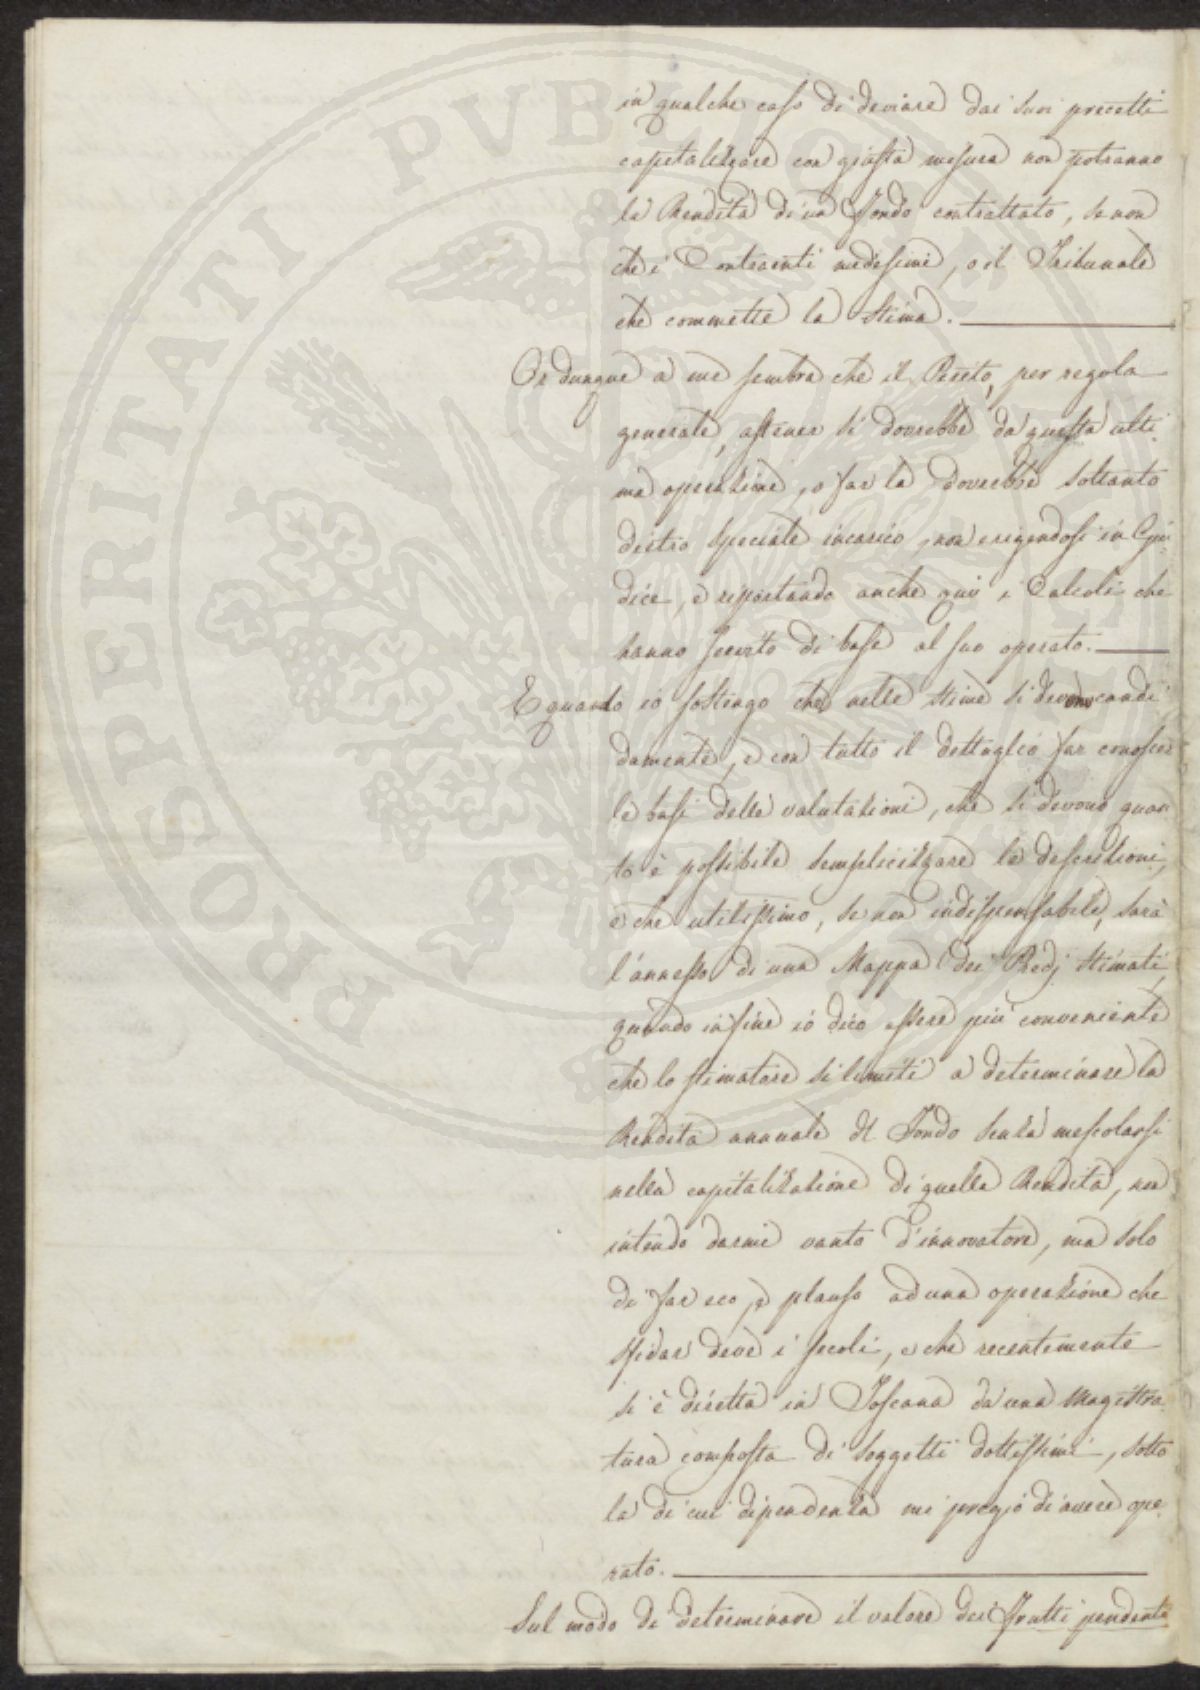 in qualche caso di deviare dai suoi precetti
capitalizzare con giusta misura non potranno
la Rendita di un Fondo contrattato, se non
che i Contraenti medesimi, o il Tribunale
che commette la Stima.
Or dunque a me sembra che il Perito, per regola
generale, astener si dovrebbe da questa ulti-
ma operazione, o far la dovrebbe soltanto
dietro speciale incarico, non erigendosi in Giu-
dice, e riportando anche qui i Calcoli che
hanno servito di base al suo operato.
E quando io sostengo che nelle stime si devono candi-
damente, e con tutto il dettaglio far conoscer
le basi delle valutazioni, che si devono quan-
to è possibile semplicizzare le descrizioni,
e che utilissimo, se non indispensabile, sarà
l'annesso di una Mappa dei Predj stimati,
quando infine io dico essere più conveniente
che lo stimatore si limiti a determinare la
Rendita annuale del Fondo senza mescolarsi
nella capitalizazione di quella Rendita, non
intendo darmi vanto d'innovatore, ma solo
di far eco, e plauso ad una operazione che
sfidar deve i secoli, e che recentemente
si è diretta in Toscana da una Magistra-
tura composta di soggetti dottissimi, sotto
la di cui dipendenza mi pregio di avere ope-
rato.
Sul modo di determinare il valore dei Frutti pendenti
PROSPERITATI PVBLICAE